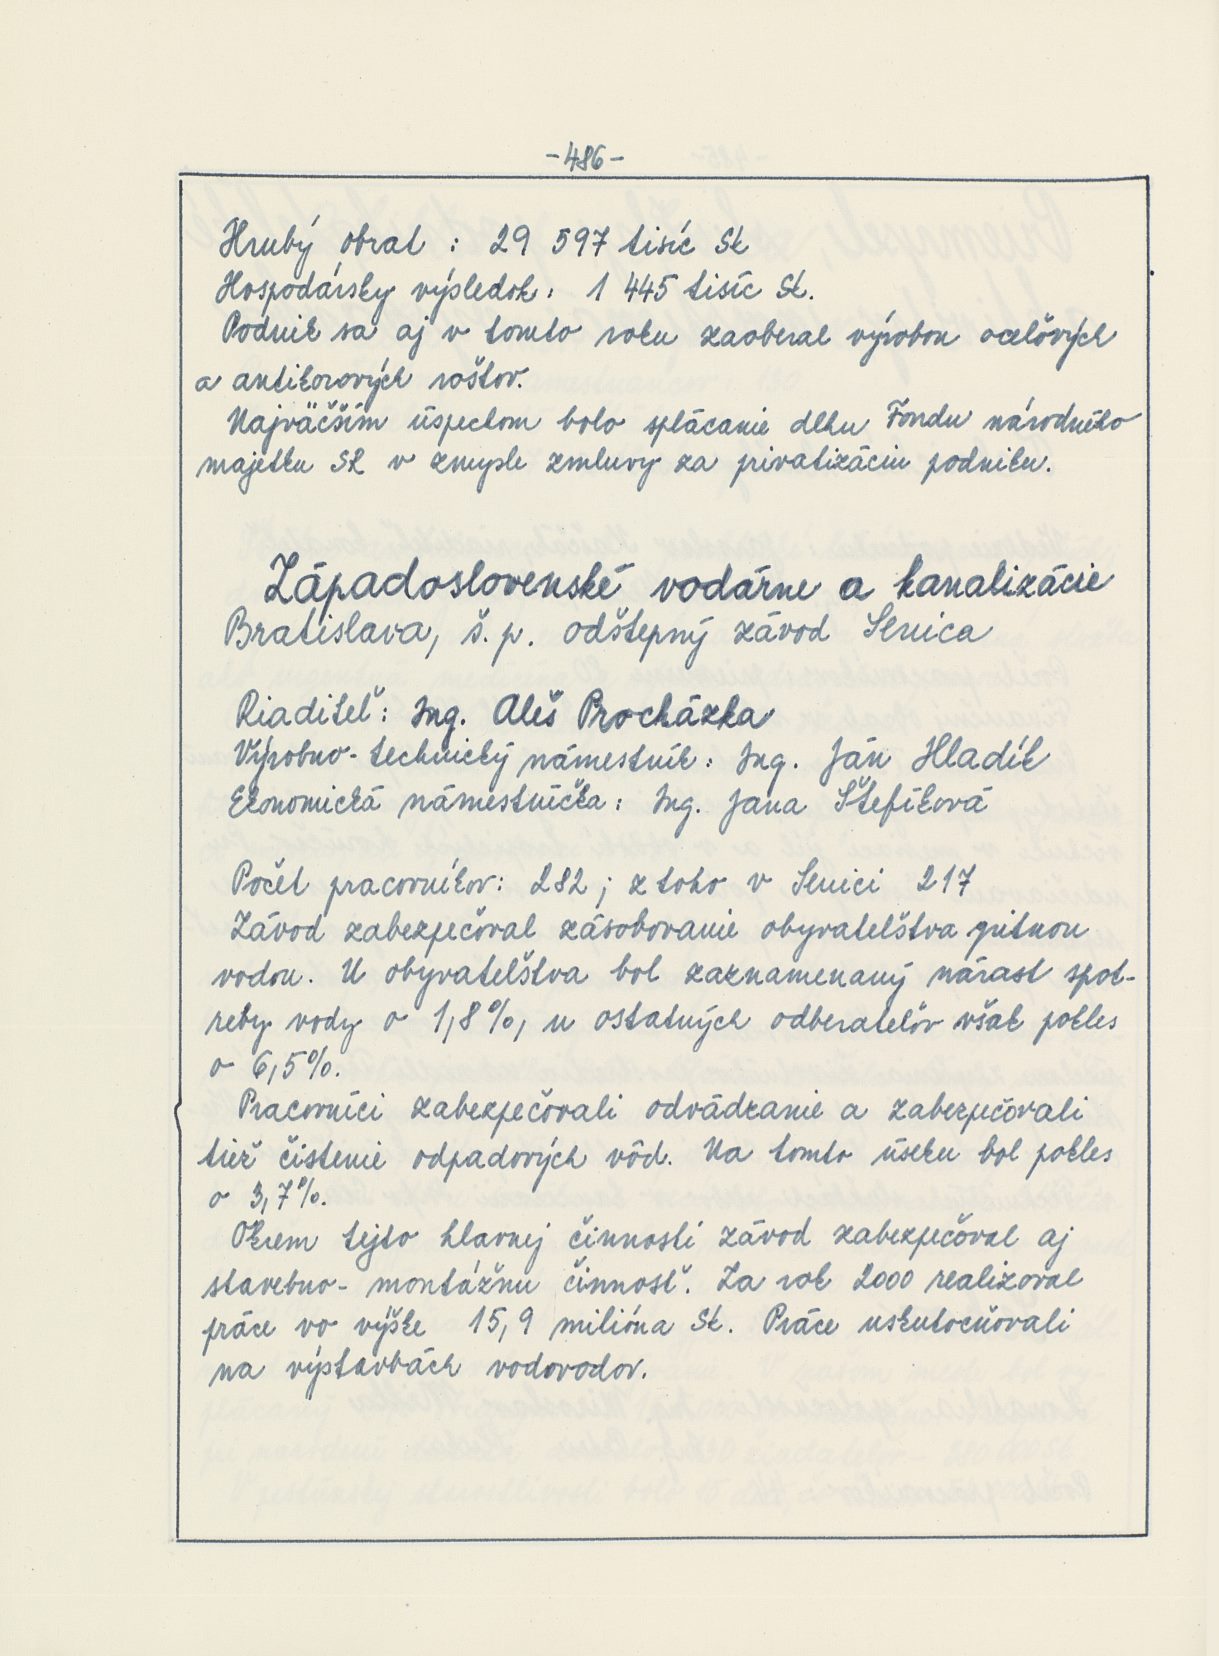 -486-
Hrubý obrat : 29 597 tisíc Sk
Hospodársky výsledok: 1 445 tisíc Sk.
Podnik sa aj v tomto roku zaoberal výrobou ocelových
a antikorových roštov.
Najväčším úspechom bolo splácanie dlhu Fondu národného
majetku SR v zmysle zmluvy za privatizáciu podniku.
Západoslovenské vodárne a kanalizácie
Bratislava, š.p. odštepný závod Senica
Riaditeľ: Ing. Aleš Procházka
Výrobno-technický námestník: Ing. Ján Hladík
Ekonomická námestníčka: Ing. Jana Štefíková
Počet pracovníkov: 282; z toho v Senici 217
Závod zabezpečoval zásobovanie obyvatelštva pitnou
vodou. U obyvatelštva bol zaznamenaný nárast spot-
reby vody o 1,8%, u ostatných odberatelóv však pokles
o 6,5%.
Pracovníci zabezpečovali odvádzanie a zabezpečovali
tiež čistenie odpadových vôd. Na tomto úseku bol pokles
o 3,7%.
Okrem tejto hlavnej činnosti závod zabezpečoval aj
stavebno-montážnu činnosť. Za rok 2000 realizoval
práce vo výške 15,9 milióna Sk. Práce uskutočňovali
na výstavbách vodovodov.